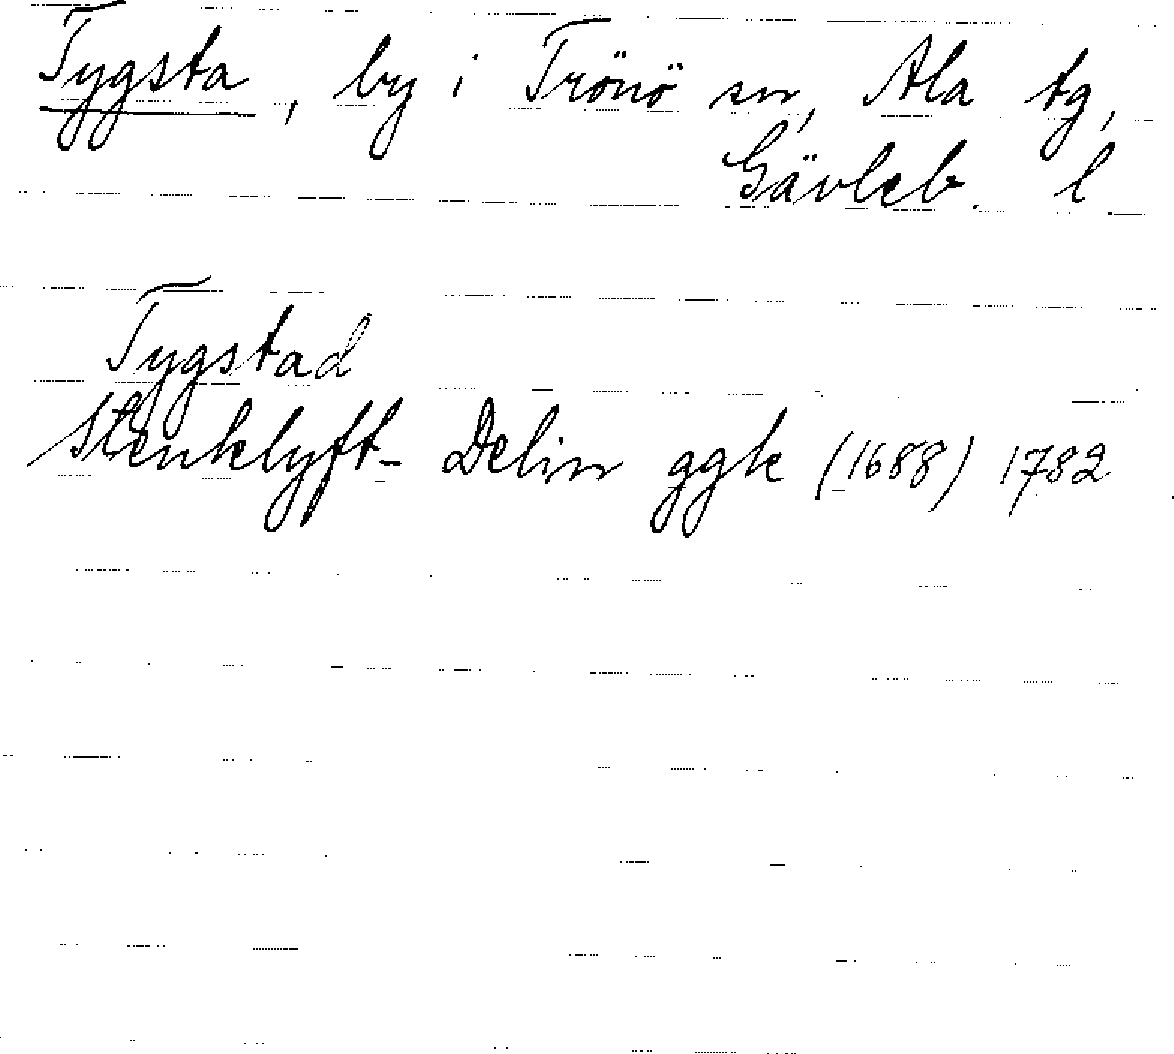 Tygsta, by i Trönö sn, Ala tg,
Gävleb. l
Tygstad
Stenklyft- Delin ggk (1688) 1782